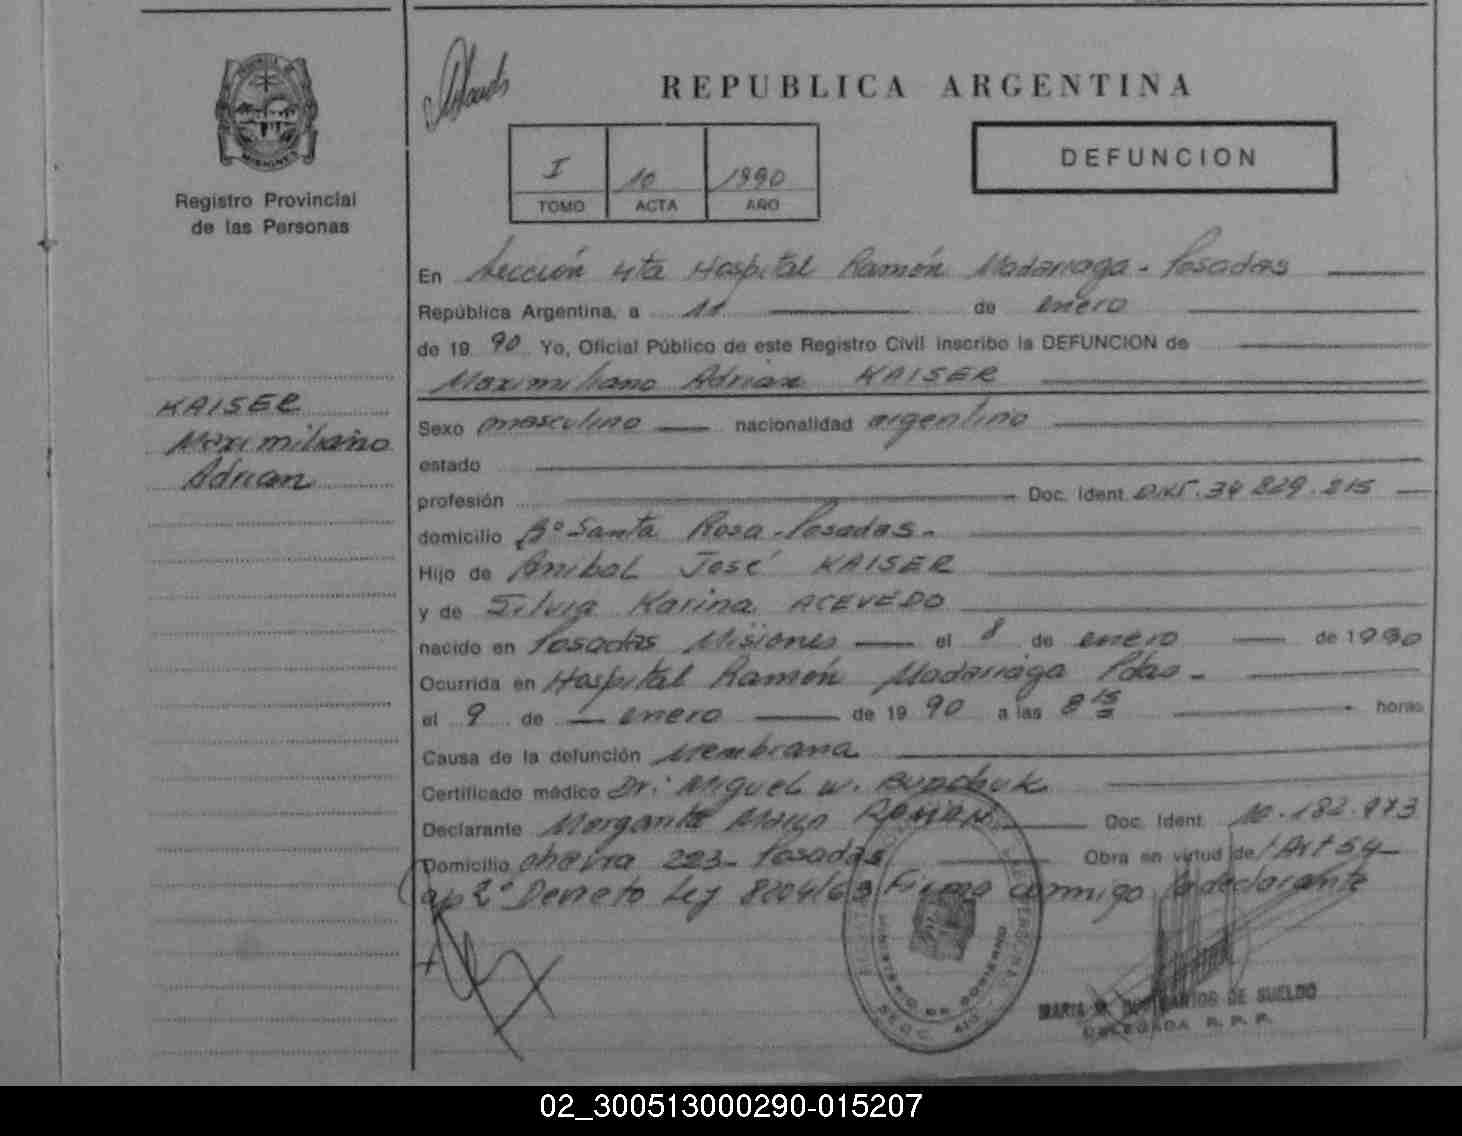 REPUBLICA ARGENTINA
DEFUNCION
PROVINCIA
MISIONES
Registro Provincial
de las Personas
I 10 1990
TOMO ACTA AÑO
En Sección 4ta Hospital Ramón Madariaga - Posadas
República Argentina, a 11 de enero
de 19 90 Yo, Oficial Público de este Registro Civil inscribo la DEFUNCION de
Maximiliano Adrian KAISER
KAISER
Maximiliano
Adrian
Sexo masculino nacionalidad argentino
estado
profesión Doc. Ident. DNI. 34 829.215
domicilio Bº Santa Rosa - Posadas -
Hijo de Anibal José KAISER
y de Silvia Karina ACEVEDO
nacido en Posadas Misiones el 8 de enero de 1990
Ocurrida en Hospital Ramón Madariaga Pdas -
el 9 de enero de 19 90 a las 8 15 horas
Causa de la defunción Membrana
Certificado médico Dr. Miguel W.
Declarante Margarita ROMAN Doc. Ident. 10.182.973
Domicilio 223 - Posadas Obra en virtud de Art 54
ap 2º Decreto Ley 8204/63 Firma conmigo la declarante
MINISTERIO DE GOBIERNO
MARIA DE SUELDO
DELEGADA R. P. P.
02_300513000290-015207